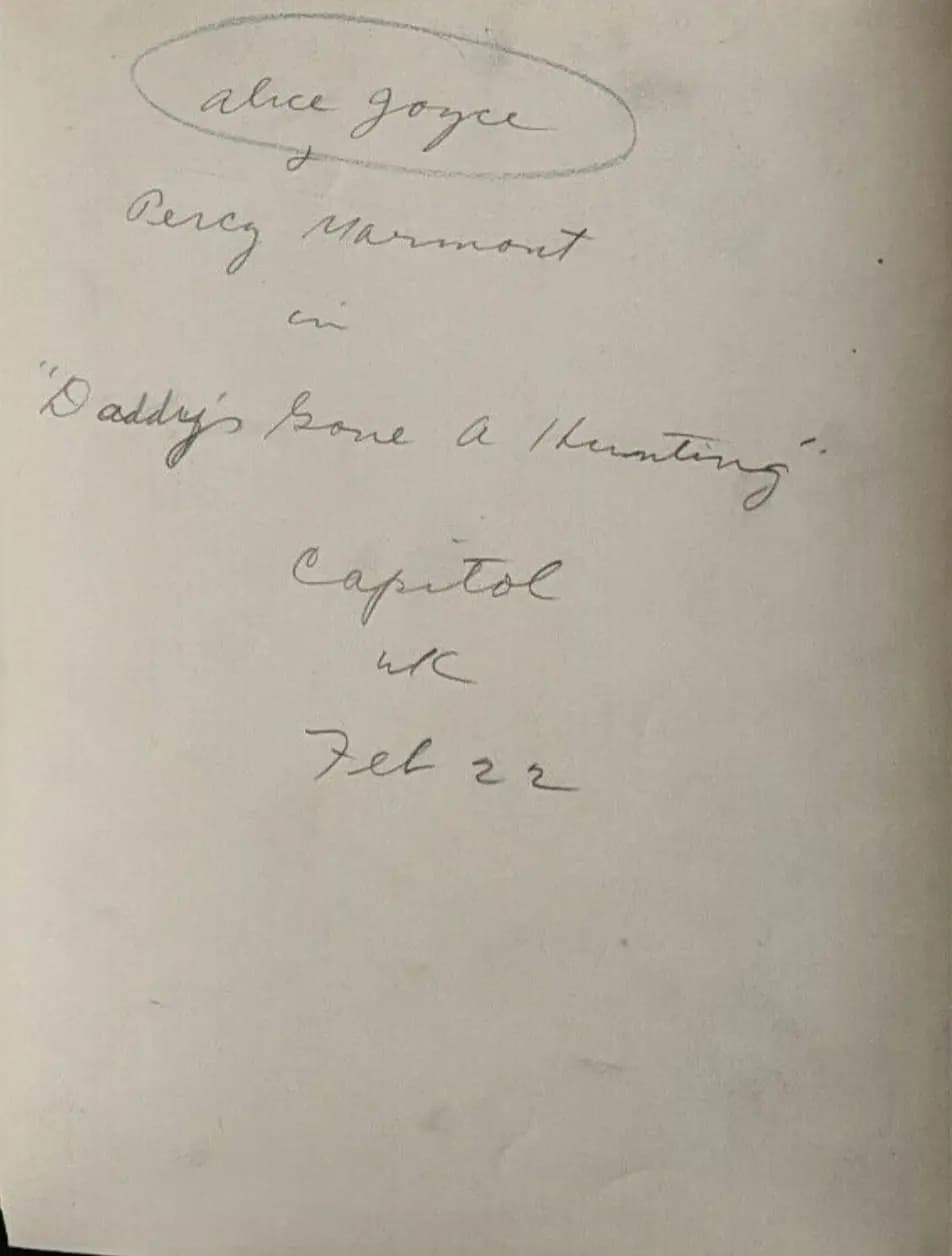 Alice Joyce
&
Percy Marmont
in
"Daddy's Gone A Hunting".
Capitol
wk
Feb 22